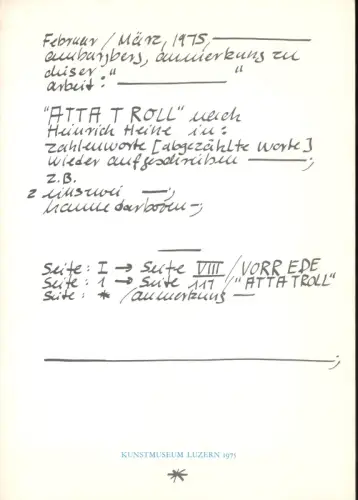 Februar/März, 1975, ———
am burgberg, anmerkung zu
dieser: " "
arbeit: ———
"ATTA TROLL" nach
Heinrich Heine in:
zahlenworte [abgezählte worte]
wieder aufgeschrieben ———;
z.B.
2 einszwei —;
hanne darboven —;
———
Seite: I → Seite VIII / VORREDE
Seite: 1 → Seite 117 / "ATTA TROLL"
Seite: * / anmerkung —
———;
KUNSTMUSEUM LUZERN 1975
*